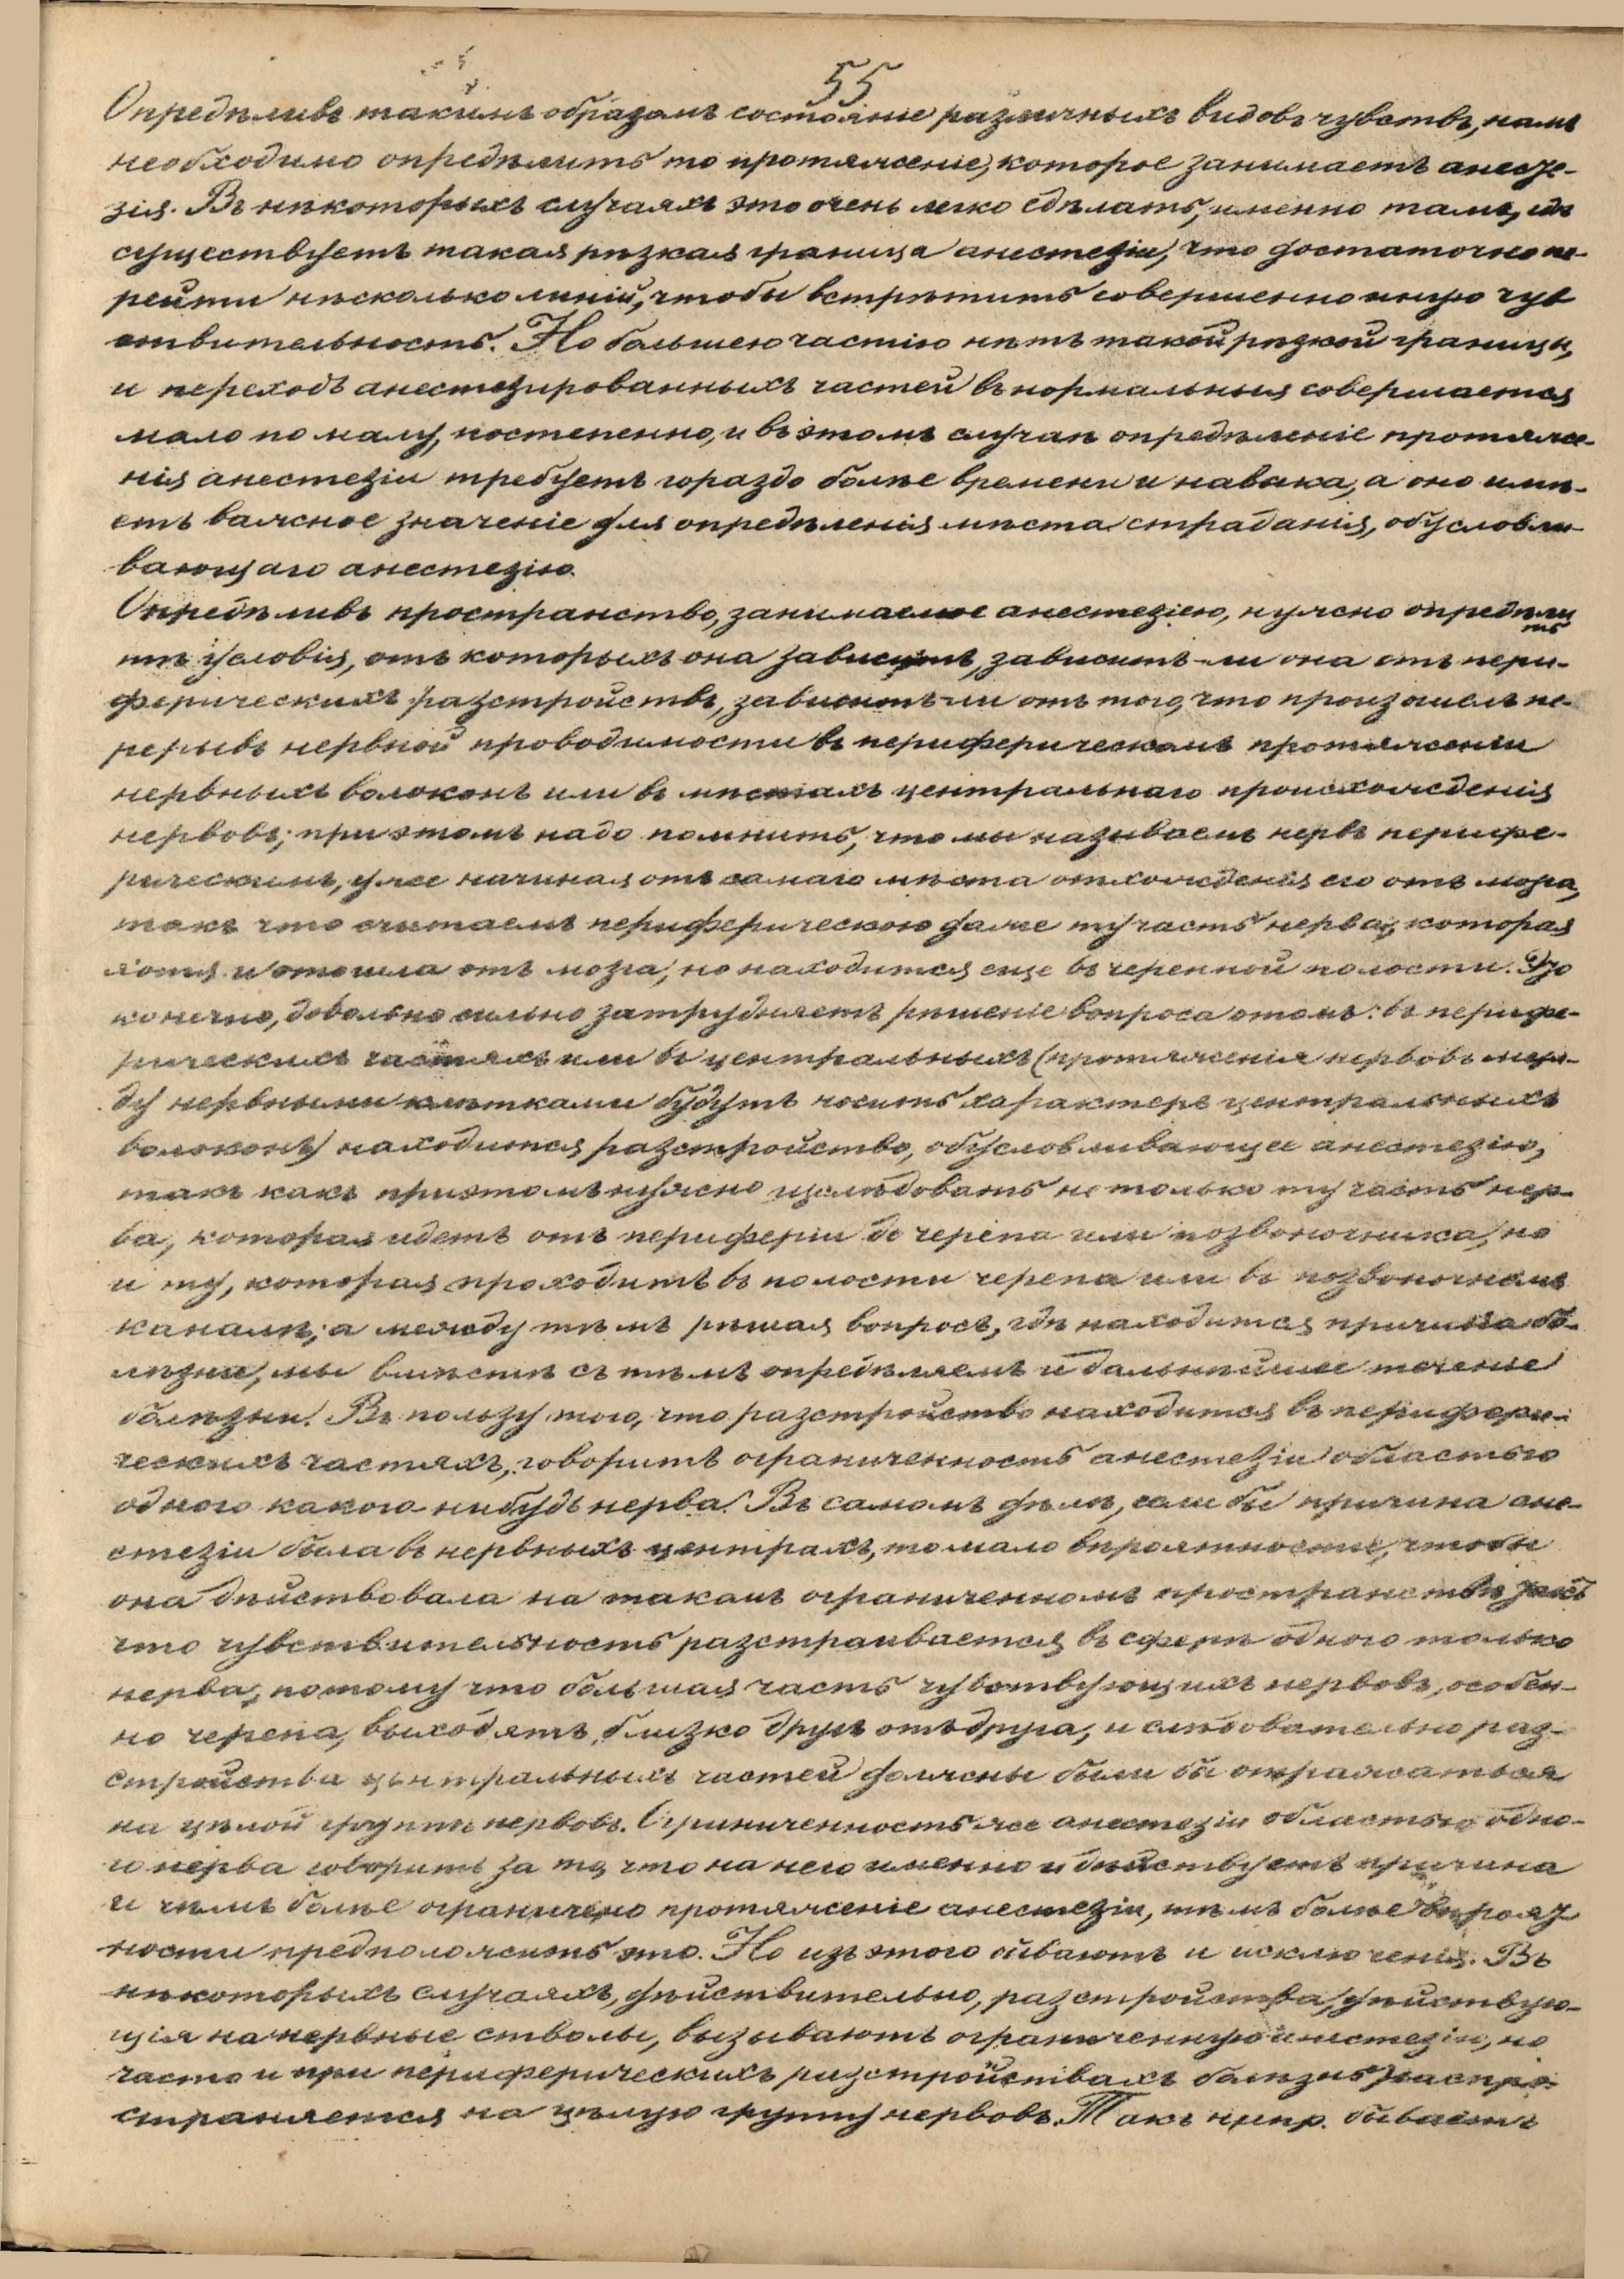 55
Опредѣливъ такимъ образомъ состояніе различныхъ видовъ чувствъ, намъ
необходимо опредѣлить то протяженіе, которое занимаетъ анесте-
зія. Въ нѣкоторыхъ случаяхъ это очень легко сдѣлать, именно тамъ, гдѣ
существуетъ такая рѣзкая граница анестезіи, что достаточно пе-
рейти нѣсколько линій, чтобы встрѣтить совершенно иную чув
ствительность. Но большею частію нѣтъ такой рѣзкой границы,
и переходъ анестезированныхъ частей въ нормальныя совершается
мало по малу, постепенно, и въ этомъ случаѣ опредѣленіе протяже-
нія анестезіи требуетъ гораздо болѣе времени и навыка, а оно имѣ-
етъ важное значеніе для опредѣленія мѣста страданія, обусловли-
вающаго анестезію.
Опредѣливъ пространство, занимаемое анестезіею, нужно опредѣли
ть
тѣ условія, отъ которыхъ она зависитъ, зависитъ-ли она отъ пери-
ферическихъ разстройствъ, зависитъ-ли отъ того, что произошелъ пе-
рерывъ нервной проводимости въ периферическомъ протяженіи
нервныхъ волоконъ или въ мѣстахъ центральнаго происхожденія
нервовъ; при этомъ надо помнить, что мы называемъ нервъ перифе-
рическимъ, уже начиная отъ самаго мѣста отхожденія его отъ мозга,
такъ что считаемъ периферическою даже ту часть нерва, которая
хотя и отошла отъ мозга, но находится еще въ черепной полости. Это
конечно, довольно сильно затрудняетъ рѣшеніе вопроса о томъ: въ перифе-
рическихъ частяхъ или въ центральныхъ (протяженія нервовъ меж-
ду нервными клѣтками будутъ носить характеръ центральныхъ
волоконъ) находится разстройство, обусловливающее анестезію,
такъ какъ приэтомъ нужно изслѣдовать не только ту часть нер-
ва, которая идетъ отъ периферіи до черепа или позвоночника, но
и ту, которая проходитъ въ полости черепа или въ позвоночномъ
каналѣ; а между тѣмъ рѣшая вопросъ, гдѣ находится причина бо-
лѣзни, мы вмѣстѣ съ тѣмъ опредѣляемъ и дальнѣйшее теченіе
болѣзни. Въ пользу того, что разстройство находится въ перифери-
ческихъ частяхъ, говоритъ ограниченность анестезіи областью
одного какого-нибудь нерва. Въ самомъ дѣлѣ, если бы причина ане-
стезіи была въ нервныхъ центрахъ, то мало вѣроятности, чтобы
она дѣйствовала на такомъ ограниченномъ пространствѣ
что чувствительность разстраивается въ сферѣ одного только
нерва, потому что большая часть чувствующихъ нервовъ, особен-
но черепа, выходятъ близко другъ отъ друга, и слѣдовательно раз-
стройства центральныхъ частей должны были бы отражаться
на цѣлой группѣ нервовъ. Ограниченность же анестезіи областью одно-
го нерва говоритъ за то, что на него именно и дѣйствуетъ причина
и чѣмъ болѣе ограничено протяженіе анестезіи, тѣмъ болѣе вѣроят
ности предположить это. Но изъ этого бываютъ и исключенія. Въ
нѣкоторыхъ случаяхъ, дѣйствительно, разстройства, дѣйствую-
щія на нервные стволы, вызываютъ ограниченную анестезію, но
часто и при периферическихъ разстройствахъ болѣзнь распро-
страняется на цѣлую группу нервовъ. Такъ напр. бываетъ